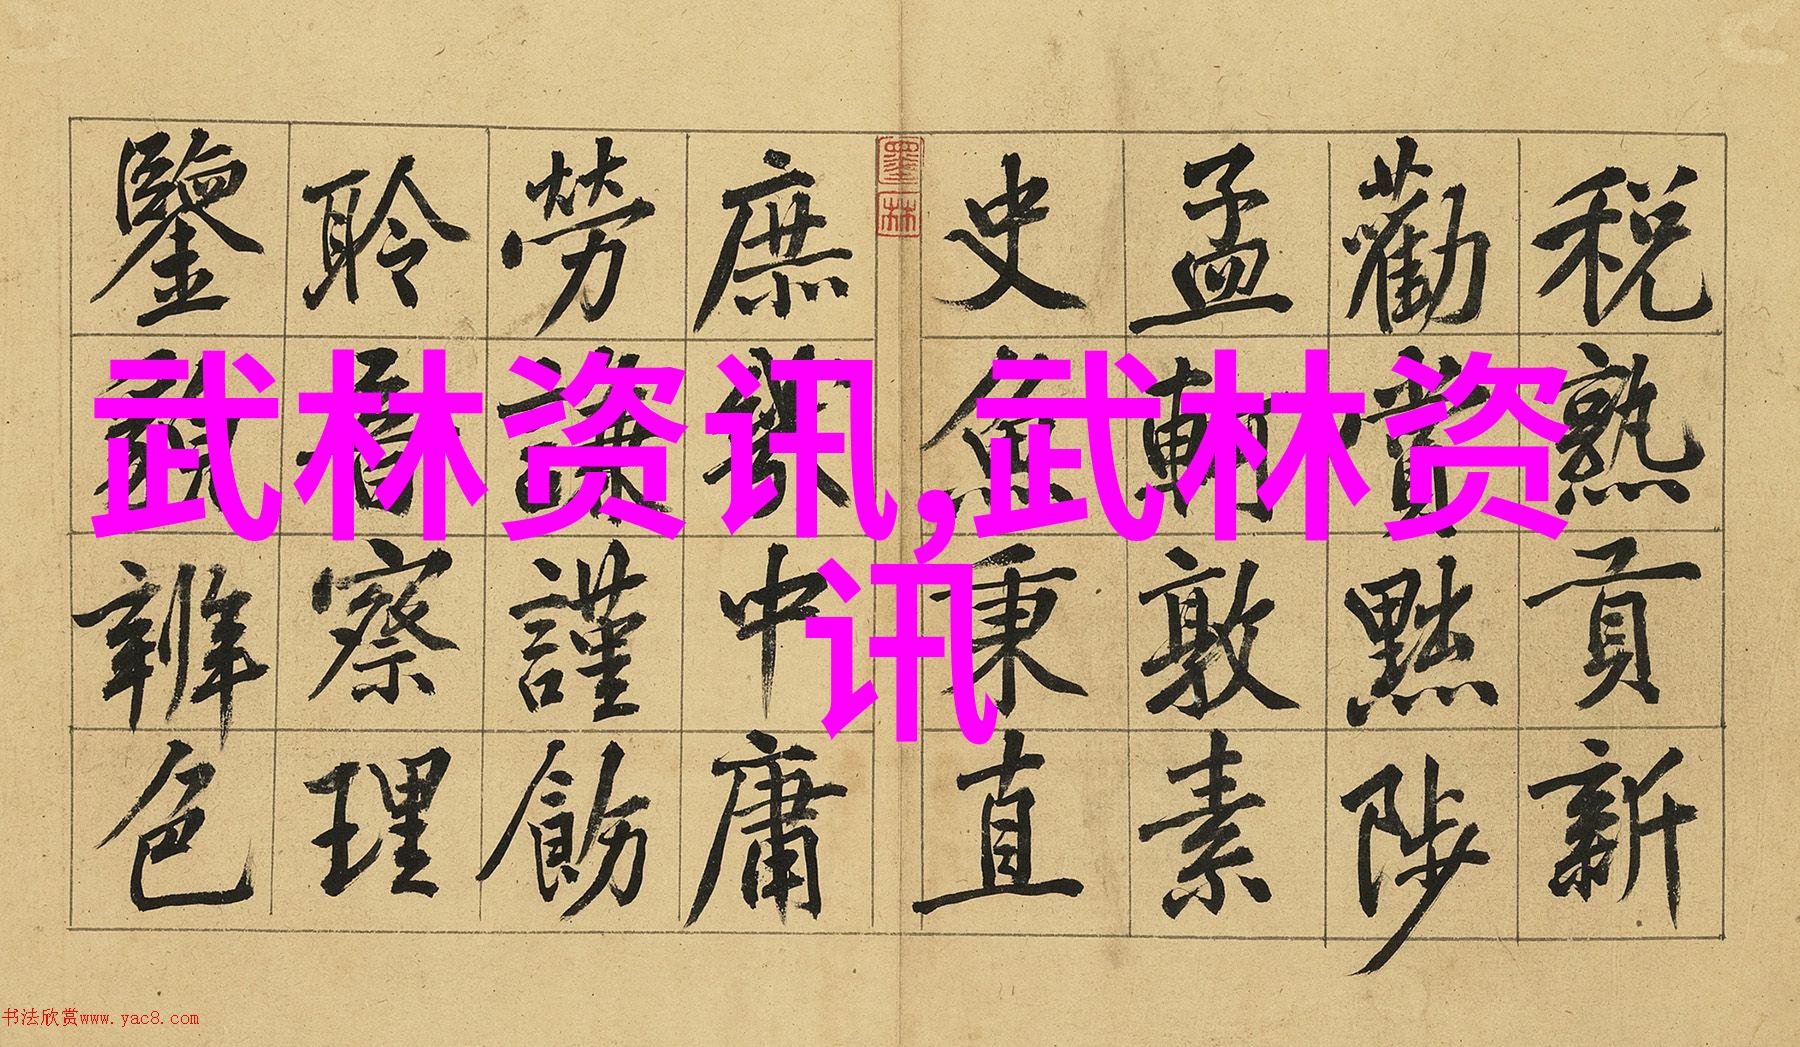 税熟貢新
勸賞黜陟
孟軻敦素
史魚秉直
墨林
庶幾中庸
勞謙謹飭
聆音察理
鑒貌辨色
武林资讯,武林资
讯
书法欣赏www.yac8.com